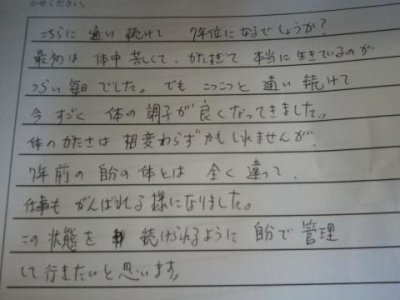 かせください。
こちらに 通い続けて 7年位になるでしょうか?
最初は 体中 苦しくて、かたすぎて 本当に生きているのが
つらい毎日でした。でも こつこつと 通い続けて
今すごく 体の調子が良くなってきました。
体のかたさは 相変わらずかもしれませんが、
7年前の自分の体とは 全く違って、
仕事も がんばれる様になりました。
この状態を 続けられるように 自分で管理
して行きたいと思います。